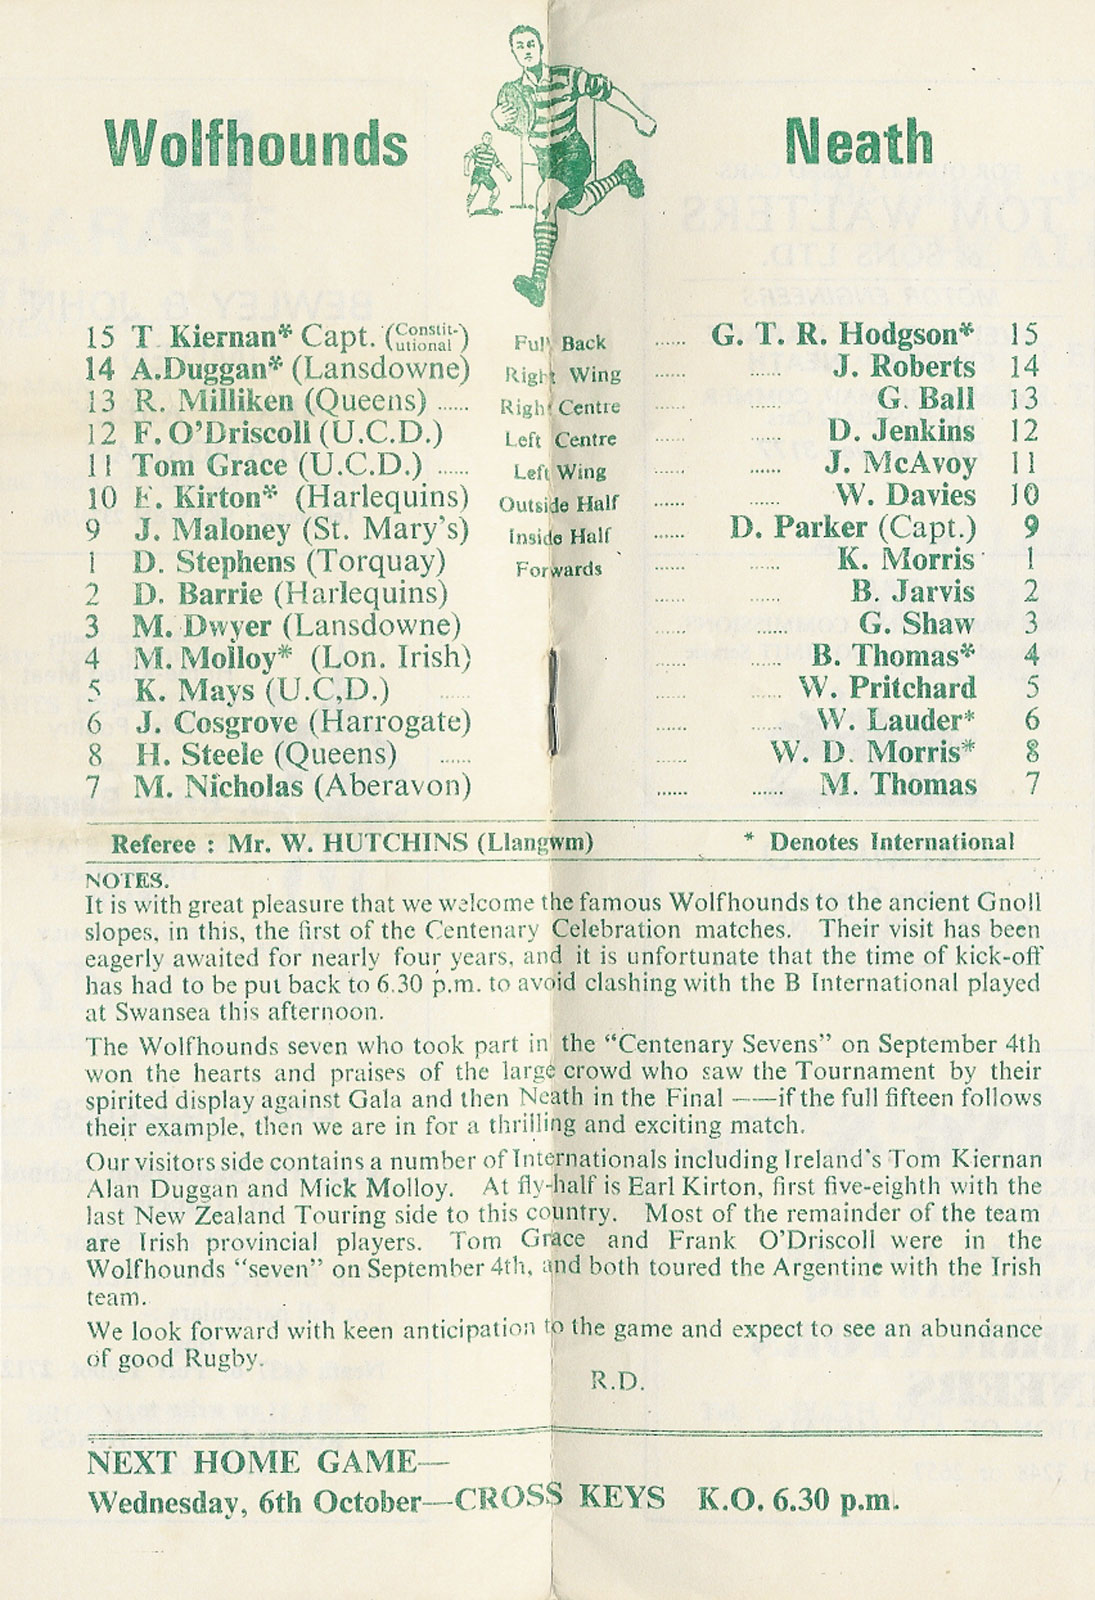 Wolfhounds Neath
15 T. Kiernan* Capt. (Constitutional) Full Back ...... G. T. R. Hodgson* 15
14 A.Duggan* (Lansdowne) Right Wing ...... ...... J. Roberts 14
13 R. Milliken (Queens) ...... Right Centre ...... ...... G. Ball 13
12 F. O'Driscoll (U.C.D.) Left Centre ...... ...... D. Jenkins 12
11 Tom Grace (U.C.D.) ...... Left Wing ...... ...... J. McAvoy 11
10 E. Kirton* (Harlequins) Outside Half ...... ...... W. Davies 10
9 J. Maloney (St. Mary's) Inside Half ...... D. Parker (Capt.) 9
1 D. Stephens (Torquay) Forwards ...... ...... K. Morris 1
2 D. Barrie (Harlequins) ...... ...... B. Jarvis 2
3 M. Dwyer (Lansdowne) ...... ...... G. Shaw 3
4 M. Molloy* (Lon. Irish) ...... ...... B. Thomas* 4
5 K. Mays (U.C,D.) ...... ...... ...... W. Pritchard 5
6 J. Cosgrove (Harrogate) ...... ...... W. Lauder* 6
8 H. Steele (Queens) ...... ...... W. D. Morris* 8
7 M. Nicholas (Aberavon) ...... ...... M. Thomas 7
Referee : Mr. W. HUTCHINS (Llangwm) * Denotes International
NOTES.
It is with great pleasure that we welcome the famous Wolfhounds to the ancient Gnoll
slopes, in this, the first of the Centenary Celebration matches. Their visit has been
eagerly awaited for nearly four years, and it is unfortunate that the time of kick-off
has had to be put back to 6.30 p.m. to avoid clashing with the B International played
at Swansea this afternoon.
The Wolfhounds seven who took part in the "Centenary Sevens" on September 4th
won the hearts and praises of the large crowd who saw the Tournament by their
spirited display against Gala and then Neath in the Final ——if the full fifteen follows
their example, then we are in for a thrilling and exciting match.
Our visitors side contains a number of Internationals including Ireland's Tom Kiernan
Alan Duggan and Mick Molloy. At fly-half is Earl Kirton, first five-eighth with the
last New Zealand Touring side to this country. Most of the remainder of the team
are Irish provincial players. Tom Grace and Frank O'Driscoll were in the
Wolfhounds "seven" on September 4th, and both toured the Argentine with the Irish
team.
We look forward with keen anticipation to the game and expect to see an abundance
of good Rugby.
R.D.
NEXT HOME GAME—
Wednesday, 6th October—CROSS KEYS K.O. 6.30 p.m.